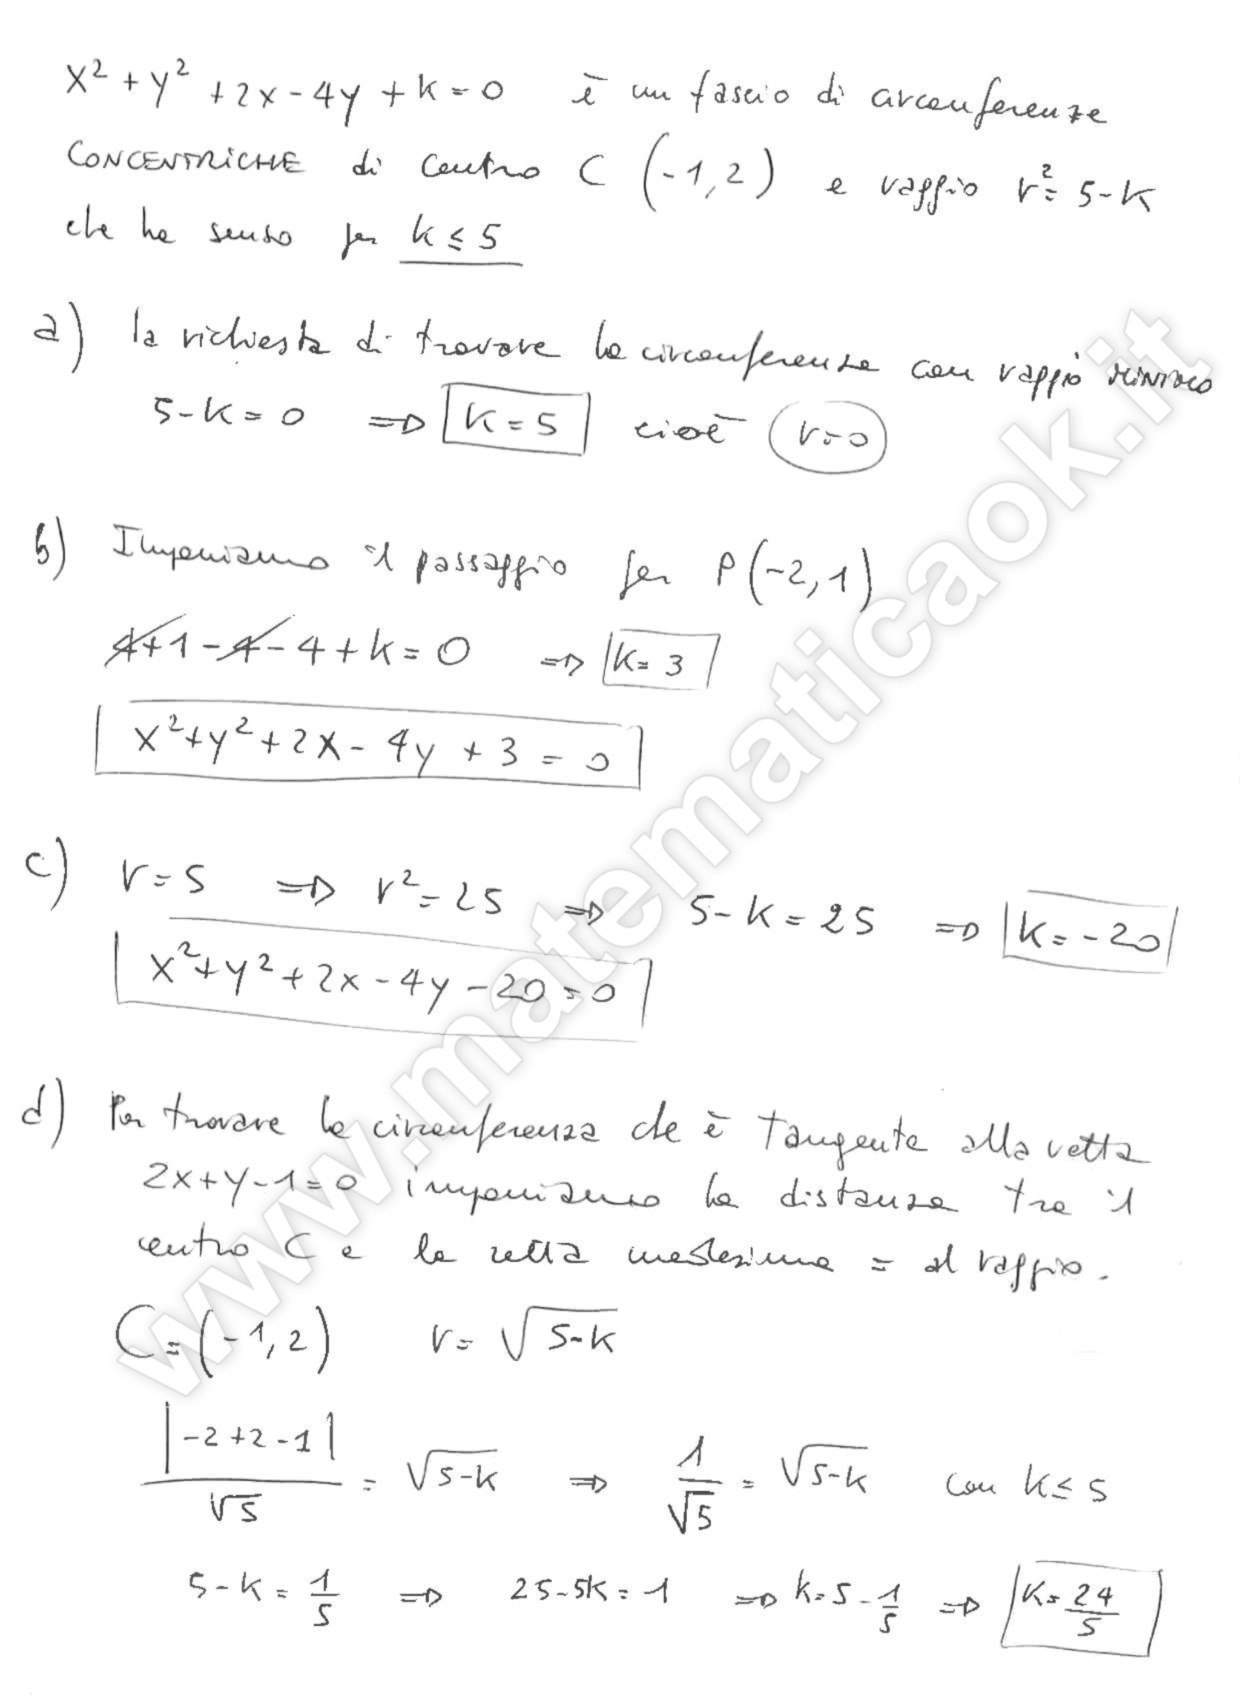 x²+y²+2x-4y+k=0 è un fascio di circonferenze
CONCENTRICHE di centro C (-1,2) e raggio r²=5-k
che ha senso per k≤5
a) la richiesta di trovare la circonferenza con raggio minimo
5-k=0 => k=5 cioè r=0
b) Imponiamo il passaggio per P(-2,1)
4+1-4-4+k=0 => k=3
x²+y²+2x-4y+3=0
c) r=5 => r²=25 => 5-k=25 => k=-20
x²+y²+2x-4y-20=0
d) Per trovare la circonferenza che è tangente alla retta
2x+y-1=0 imponiamo la distanza tra il
centro C e la retta medesima = al raggio.
C=(-1,2) r=√(5-k)
|-2+2-1|/√5 = √(5-k) => 1/√5 = √(5-k) con k≤5
5-k=1/5 => 25-5k=1 => k=5-1/5 => k=24/5
www.matematicaok.it